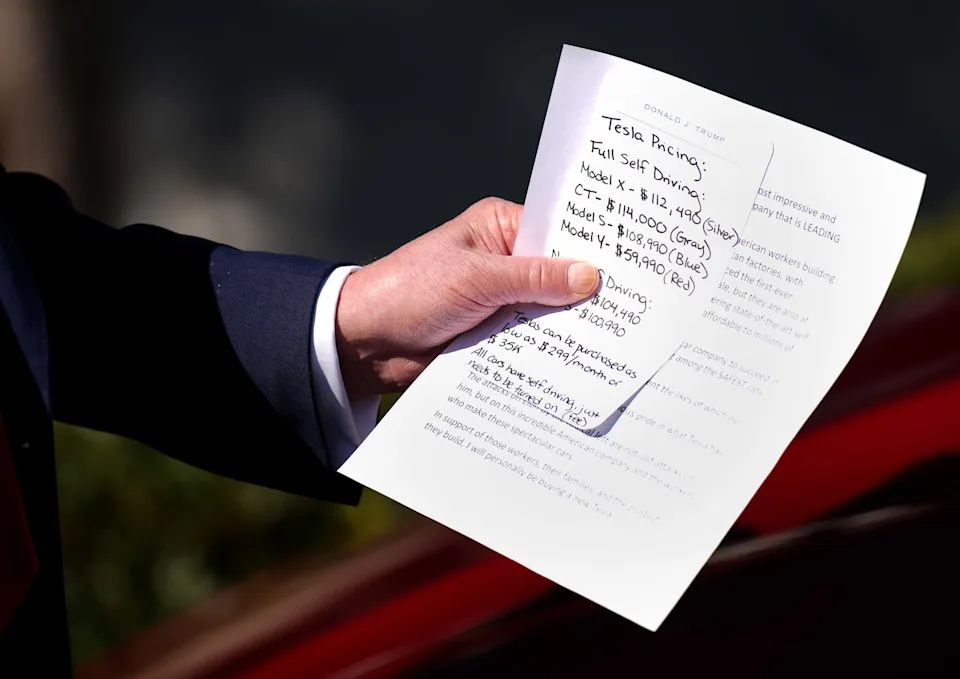 DONALD J. TRUMP
Tesla Pricing:
Full Self Driving:
Model X - $112,490 (Silver)
CT - $114,000 (Gray)
Model S - $108,990 (Blue)
Model Y - $59,990 (Red)
Driving:
$104,490
S - $100,990
Teslas can be purchased as
low as $299/month or
$35K
All cars have self driving, just
needs to be turned on (fee)
impressive and
that is LEADING
workers building
factories, with
the first-ever
but they are also at
state-of-the-art self
affordable to millions of
car company to succeed in
among the SAFEST cars
the likes of which our
pride in what Tesla has
The attacks on left are not just attacks on
him, but on this incredible American company and the workers
who make these spectacular cars.
In support of those workers, their families, and the product
they build, I will personally be buying a new Tesla